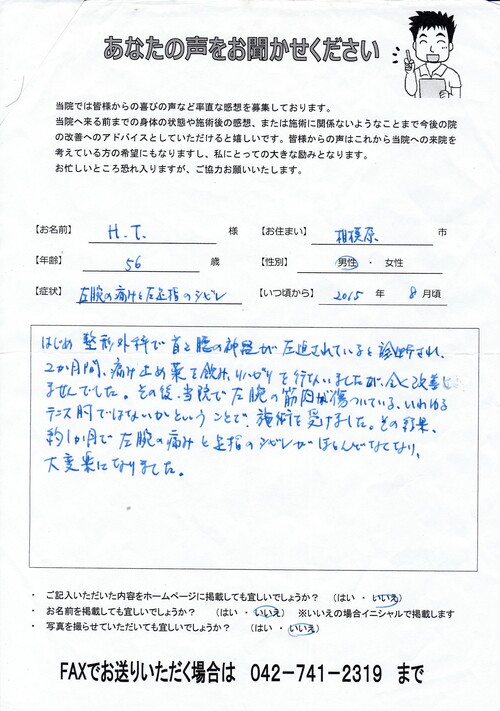 あなたの声をお聞かせください
当院では皆様からの喜びの声など率直な感想を募集しております。
当院へ来る前までの身体の状態や施術後の感想、または施術に関係ないようなことまで今後の院
の改善へのアドバイスとしていただけると嬉しいです。皆様からの声はこれから当院への来院を
考えている方の希望にもなりますし、私にとっての大きな励みとなります。
お忙しいところ恐れ入りますが、ご協力お願いいたします。
【お名前】 H.T. 様 【お住まい】 相模原 市
【年齢】 56 歳 【性別】 男性 ・ 女性
【症状】 左腕の痛みと左足指のシビレ 【いつ頃から】 2015 年 8 月頃
はじめ整形外科で首と腰の神経が圧迫されていると診断され、
2か月間、痛み止め薬を飲み、リハビリを行ないましたが、全く改善し
ませんでした。その後、当院で左腕の筋肉が傷ついている、いわゆる
テニス肘ではないかということで、施術を受けました。その結果、
約1か月で左腕の痛みと足指のシビレがほとんどなくなり、
大変楽になりました。
・ ご記入いただいた内容をホームページに掲載しても宜しいでしょうか? (はい ・ いいえ)
・ お名前を掲載しても宜しいでしょうか? (はい ・ いいえ) ※いいえの場合イニシャルで掲載します
・ 写真を撮らせていただいても宜しいでしょうか? (はい ・ いいえ)
FAXでお送りいただく場合は 042-741-2319 まで